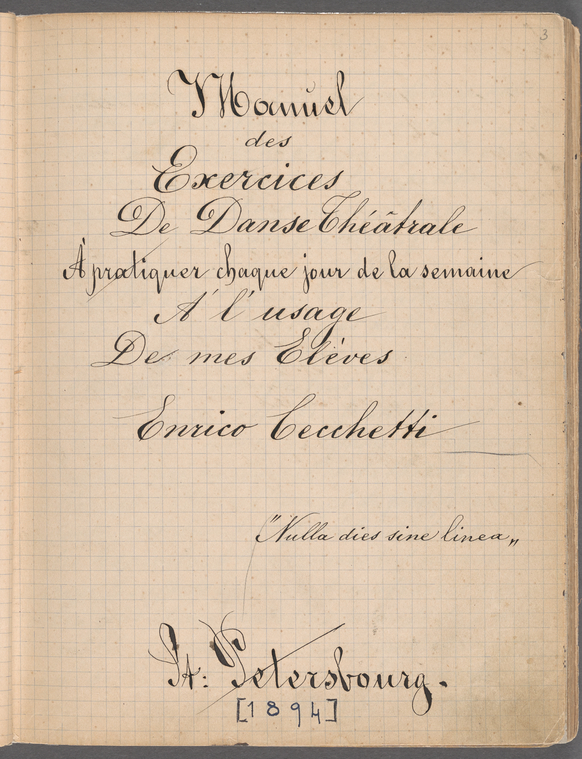 3
Manuel
des
Exercices
De Danse Théâtrale
À pratiquer chaque jour de la semaine
A' l' usage
De mes Elèves
Enrico Cecchetti
"Nulla dies sine linea„
St: Petersbourg.
[1894]